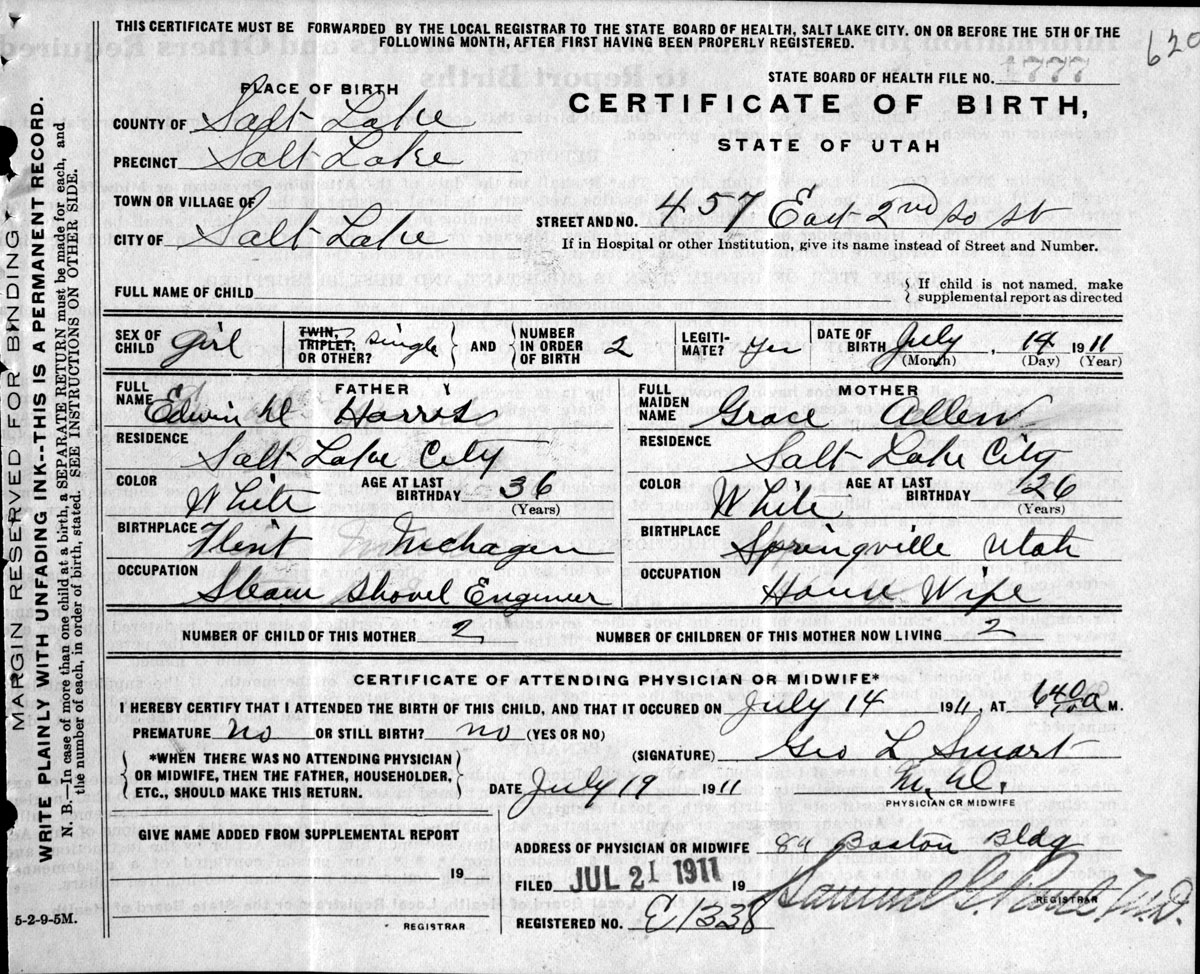 THIS CERTIFICATE MUST BE FORWARDED BY THE LOCAL REGISTRAR TO THE STATE BOARD OF HEALTH, SALT LAKE CITY. ON OR BEFORE THE 5TH OF THE
FOLLOWING MONTH, AFTER FIRST HAVING BEEN PROPERLY REGISTERED.
620
STATE BOARD OF HEALTH FILE NO. 1777
PLACE OF BIRTH
CERTIFICATE OF BIRTH,
STATE OF UTAH
COUNTY OF Salt Lake
PRECINCT Salt Lake
TOWN OR VILLAGE OF
CITY OF Salt Lake
STREET AND NO. 457 East 2nd So St
If in Hospital or other Institution, give its name instead of Street and Number.
FULL NAME OF CHILD
{ If child is not named, make
supplemental report as directed
SEX OF CHILD girl
TWIN, TRIPLET, OR OTHER? single } AND { NUMBER IN ORDER OF BIRTH 2
LEGITI-MATE? yes
DATE OF BIRTH July, 14 1911
(Month) (Day) (Year)
FATHER
FULL NAME Edwin M Harris
RESIDENCE
Salt Lake City
COLOR White AGE AT LAST BIRTHDAY 36
(Years)
BIRTHPLACE
Flint Michagen
OCCUPATION
Steam Shovel Engineer
MOTHER
FULL MAIDEN NAME Grace Allen
RESIDENCE
Salt Lake City
COLOR White AGE AT LAST BIRTHDAY 26
(Years)
BIRTHPLACE
Springville Utah
OCCUPATION
House Wife
NUMBER OF CHILD OF THIS MOTHER 2 NUMBER OF CHILDREN OF THIS MOTHER NOW LIVING 2
CERTIFICATE OF ATTENDING PHYSICIAN OR MIDWIFE*
I HEREBY CERTIFY THAT I ATTENDED THE BIRTH OF THIS CHILD, AND THAT IT OCCURED ON July 14 1911, AT 640 a M.
PREMATURE No OR STILL BIRTH? no (YES OR NO)
(SIGNATURE) Geo L Smart
M.D.
PHYSICIAN OR MIDWIFE
{ *WHEN THERE WAS NO ATTENDING PHYSICIAN
OR MIDWIFE, THEN THE FATHER, HOUSEHOLDER,
ETC., SHOULD MAKE THIS RETURN. }
DATE July 19 1911
GIVE NAME ADDED FROM SUPPLEMENTAL REPORT
19
REGISTRAR
ADDRESS OF PHYSICIAN OR MIDWIFE Boston Bldg
FILED JUL 21 1911 19
REGISTRAR
REGISTERED NO. E1338
5-2-9-5M.
MARGIN RESERVED FOR BINDING
WRITE PLAINLY WITH UNFADING INK--THIS IS A PERMANENT RECORD.
N. B.—In case of more than one child at a birth, a SEPARATE RETURN must be made for each, and
the number of each, in order of birth, stated. SEE INSTRUCTIONS ON OTHER SIDE.